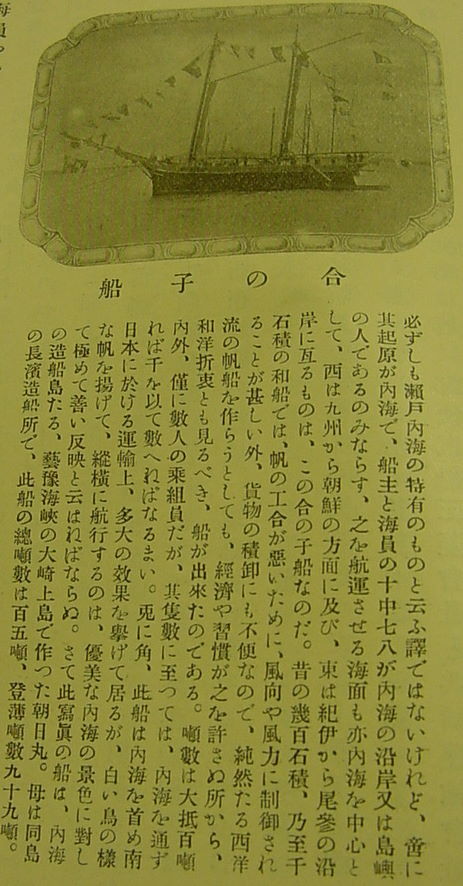 合の子船
必ずしも瀨戶內海の特有のものと云ふ譯ではないけれど、啻に
其起原が內海で、船主と海員の十中七八が內海の沿岸又は島嶼
の人であるのみならず、之を航運させる海面も亦內海を中心と
して、西は九州から朝鮮の方面に及び、東は紀伊から尾參の沿
岸に亙るものは、この合の子船なのだ。昔の幾百石積、乃至千
石積の和船では、帆の工合が惡いために、風向や風力に制御され
ることが甚しい外、貨物の積卸にも不便なので、純然たる西洋
流の帆船を作らうとしても、經濟や習慣が之を許さぬ所から、
和洋折衷とも見るべき、船が出來たのである。噸數は大抵百噸
內外、僅に數人の乘組員だが、其隻數に至つては、內海を通ず
れば千を以て數へねばなるまい。兎に角、此船は內海を首め南
日本に於ける運輸上、多大の效果を擧げて居るが、白い鳥の樣
な帆を揚げて、縱橫に航行するのは、優美な內海の景色に對し
て極めて善い反映と云はねばならぬ。さて此寫眞の船は、內海
の造船島たる、藝豫海峽の大崎上島で作つた朝日丸。母は同島
の長濱造船所で、此船の總噸數は百五噸、登簿噸數九十九噸。